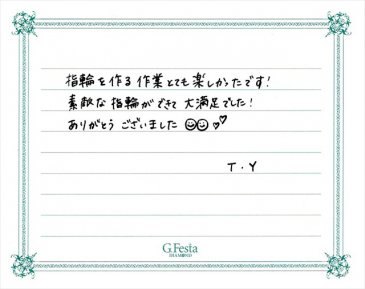 指輪を作る作業とても楽しかったです!
素敵な指輪ができて大満足でした!
ありがとうございました
T.Y
G.Festa
DIAMOND